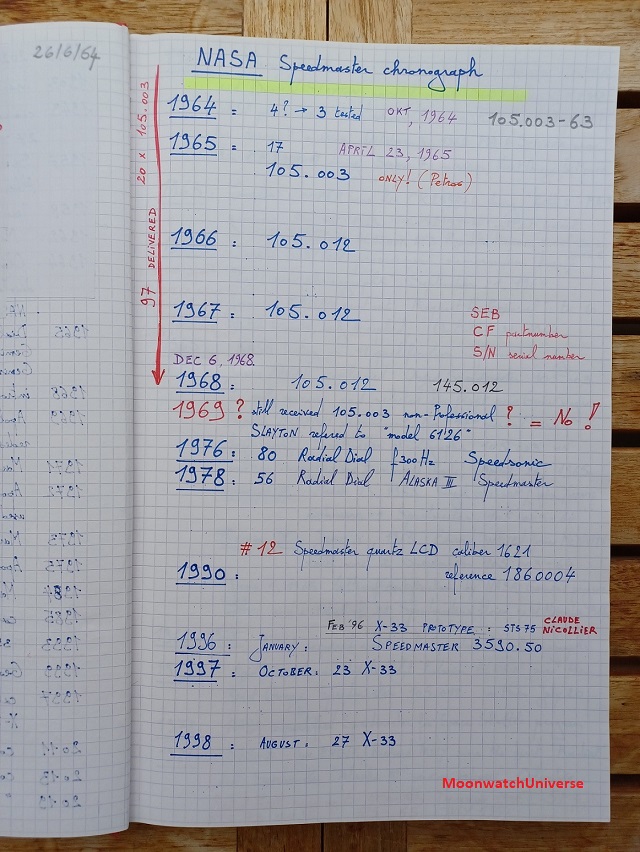 26/6/64
NASA Speedmaster chronograph
20 x 105.003
97 DELIVERED
1964 = 4? → 3 tested OKT, 1964 105.003-63
1965 = 17 APRIL 23, 1965
105.003 ONLY! (Petros)
1966 : 105.012
1967 : 105.012
SEB
CF partnumber
S/N serial number
DEC 6, 1968.
1968 : 105.012 145.012
1969 ? still received 105.003 non-Professional ? = No !
SLAYTON refered to "model 6126"
1976 : 80 Radial Dial f300Hz Speedsonic
1978 : 56 Radial Dial ALASKA III Speedmaster
#12 Speedmaster quartz LCD caliber 1621
1990 : reference 1860004
FEB '96 X-33 PROTOTYPE : STS75 CLAUDE NICOLLIER
1996 : JANUARY : SPEEDMASTER 3590.50
1997 : OCTOBER : 23 X-33
1998 : AUGUST : 27 X-33
MoonwatchUniverse